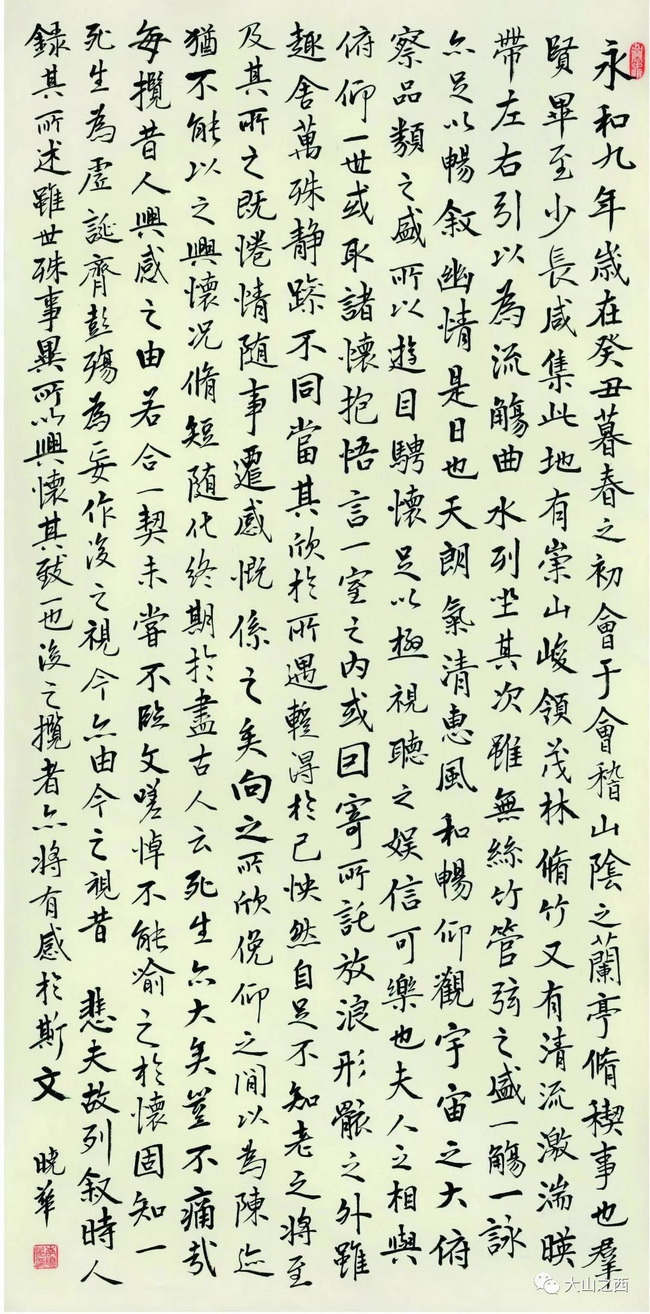 永和九年歲在癸丑暮春之初會于會稽山陰之蘭亭脩稧事也羣
賢畢至少長咸集此地有崇山峻領茂林脩竹又有清流激湍暎
帶左右引以為流觴曲水列坐其次雖無絲竹管弦之盛一觴一詠
亦足以暢叙幽情是日也天朗氣清惠風和暢仰觀宇宙之大俯
察品類之盛所以遊目騁懷足以極視聽之娱信可樂也夫人之相與
俯仰一世或取諸懷抱悟言一室之内或因寄所託放浪形骸之外雖
趣舍萬殊静躁不同當其欣於所遇暫得於己怏然自足不知老之將至
及其所之既惓情随事遷感慨係之矣向之所欣俛仰之間以為陳迹
猶不能以之興懷况脩短随化終期於盡古人云死生亦大矣豈不痛哉
每攬昔人興感之由若合一契未嘗不臨文嗟悼不能喻之於懷固知一
死生為虚誕齊彭殤為妄作後之視今亦由今之視昔 悲夫故列叙時人
録其所述雖世殊事異所以興懷其致一也後之攬者亦將有感於斯文
晓華
大山之西